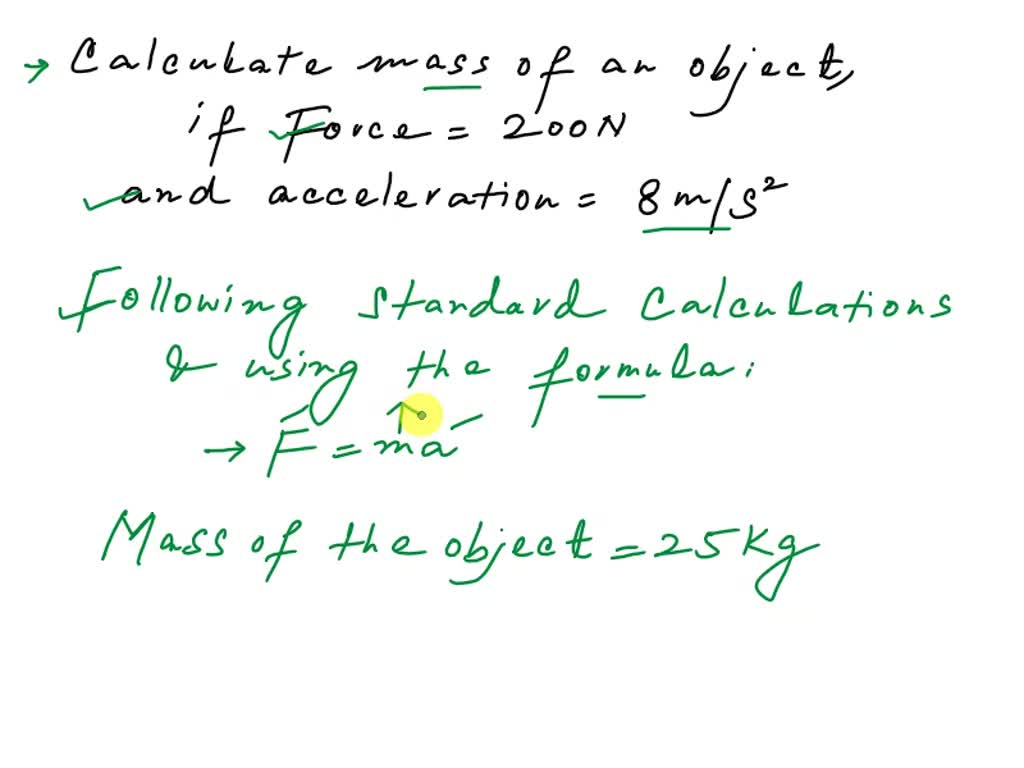 → Calculate mass of an object,
if Force = 200N
and acceleration = 8 m/s²
Following standard calculations
& using the formula:
→ F = ma
Mass of the object = 25 Kg